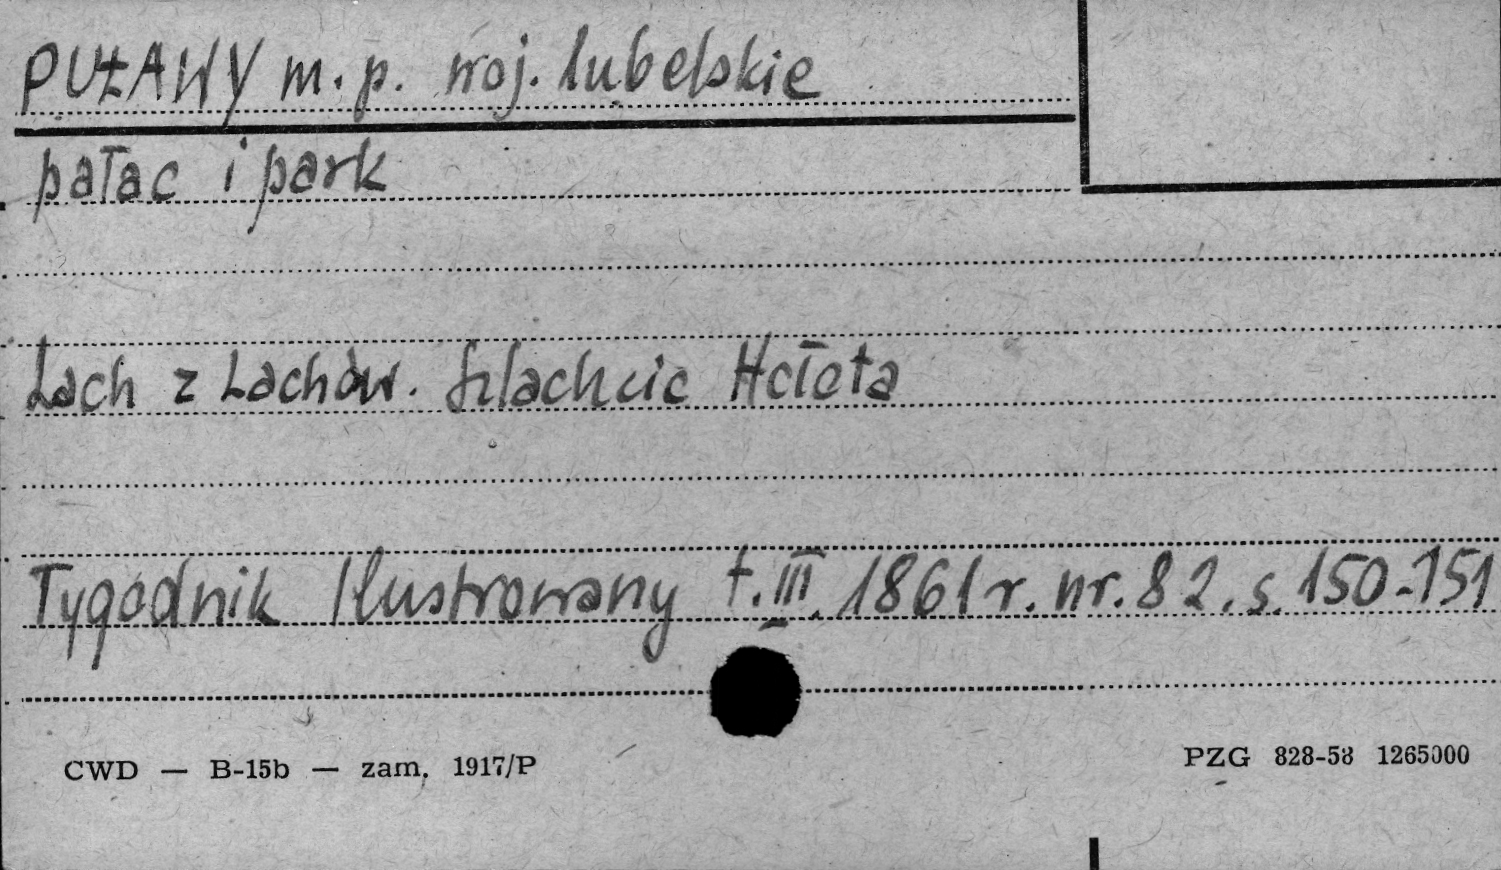 PUŁAWY m. p. woj. lubelskie
pałac i park
Lach z Lachów. Szlachcic Hołota
Tygodnik Ilustrowany t. III. 1861 r. nr. 82. s. 150-151
CWD — B-15b — zam. 1917/P
PZG 828-58 1265000